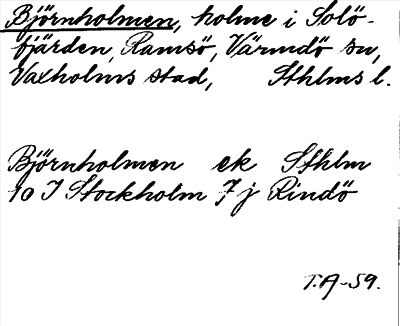 Björnholmen, holme i Solö-
fjärden, Ramsö, Värmdö sn,
Vaxholms stad, Sthlms l.
Björnholmen ek Sthlm
10 I Stockholm 7 j Rindö
T.A-59.